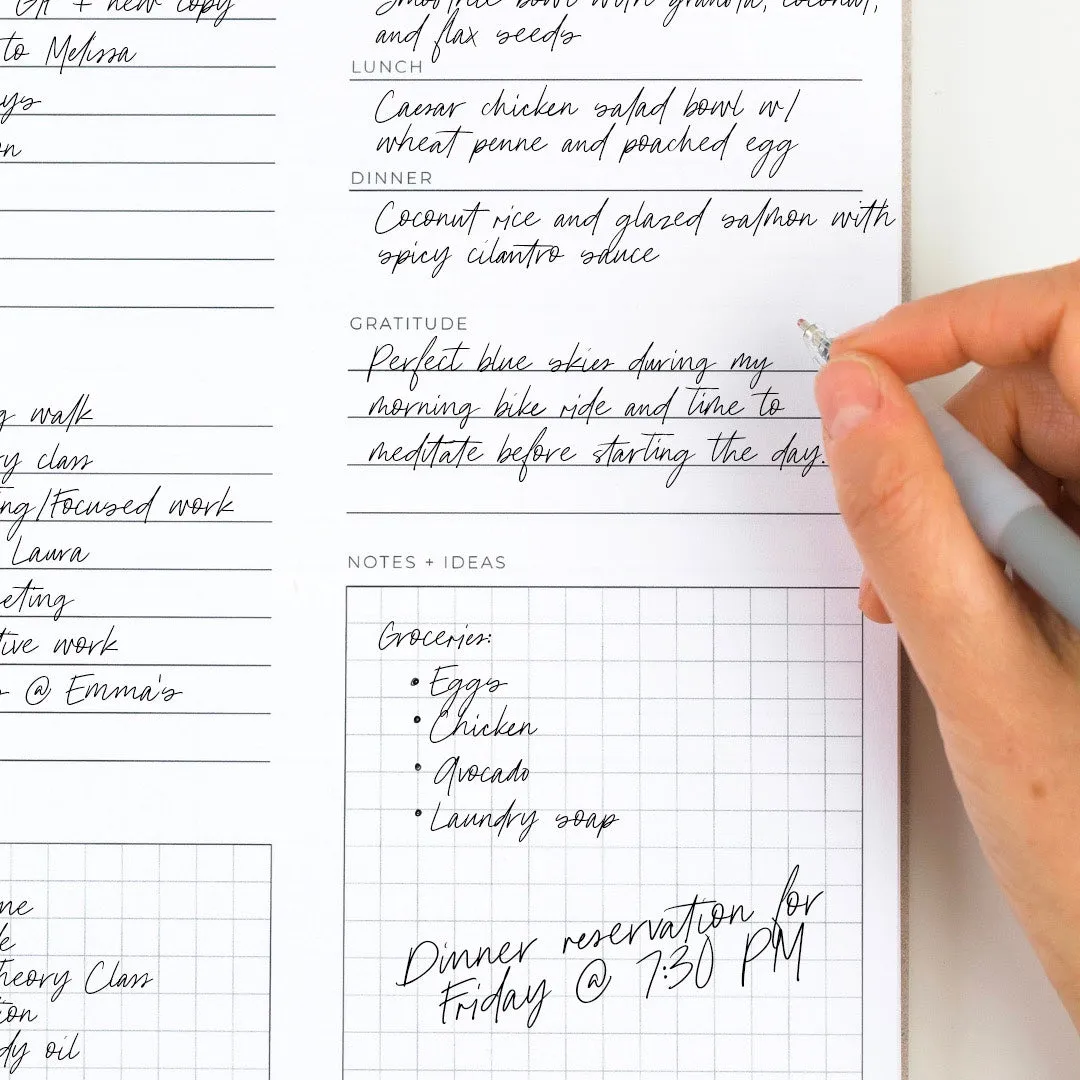 + new copy
to Melissa
walk
class
/Focused work
Laura
work
@ Emma's
Class
oil
Smoothie bowl with granola, coconut,
and flax seeds
LUNCH
Caesar chicken salad bowl w/
wheat penne and poached egg
DINNER
Coconut rice and glazed salmon with
spicy cilantro sauce
GRATITUDE
Perfect blue skies during my
morning bike ride and time to
meditate before starting the day.
NOTES + IDEAS
Groceries:
• Eggs
• Chicken
• Avocado
• Laundry soap
Dinner reservation for
Friday @ 7:30 PM